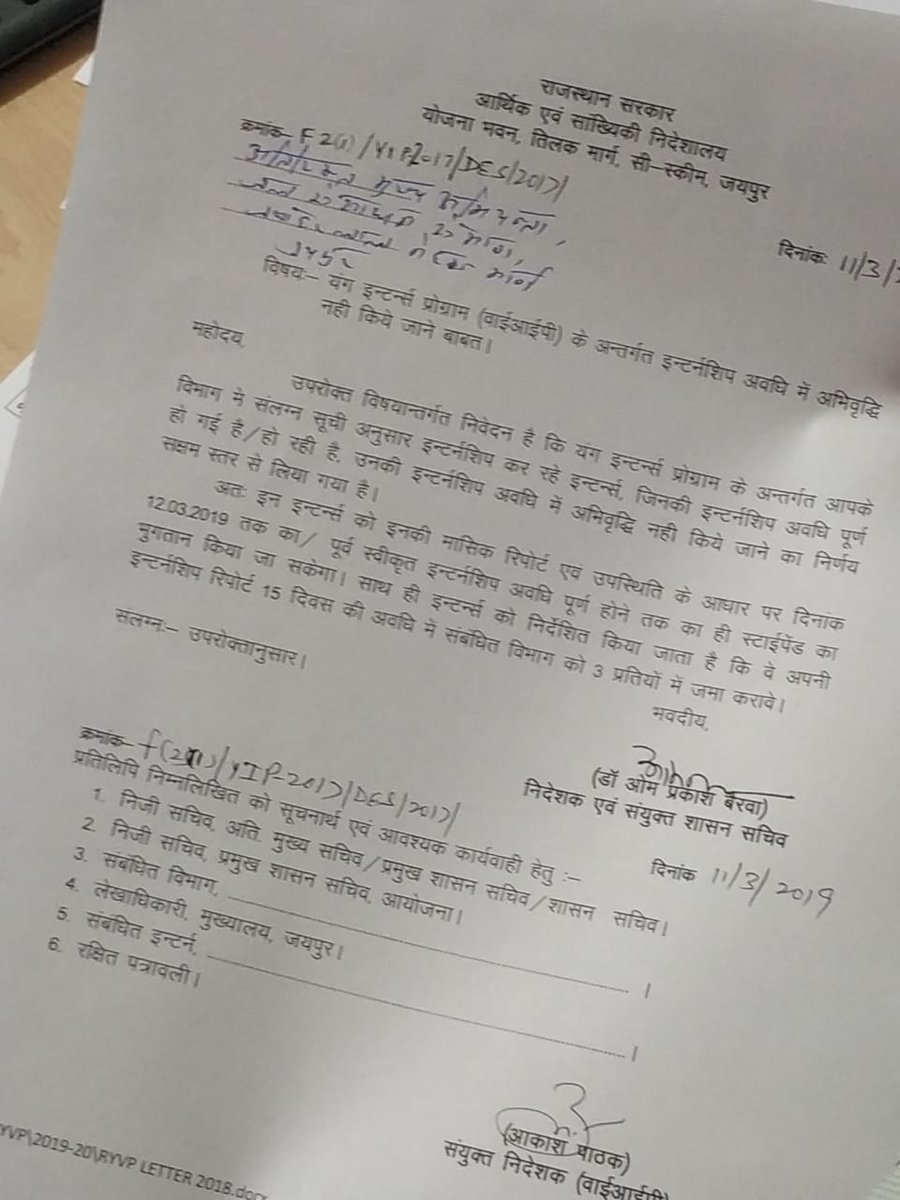 राजस्थान सरकार
आर्थिक एवं सांख्यिकी निदेशालय
योजना भवन, तिलक मार्ग, सी–स्कीम, जयपुर
क्रमांक– F 2(1)/YIP/2017/DES/2017/
दिनांकः 11/3/
अतिरिक्त मुख्य अभियन्ता,
जयपुर
विषयः– यंग इन्टर्न्स प्रोग्राम (वाईआईपी) के अन्तर्गत इन्टर्नशिप अवधि में अभिवृद्धि
नही किये जाने बाबत।
महोदय,
उपरोक्त विषयान्तर्गत निवेदन है कि यंग इन्टर्न्स प्रोग्राम के अन्तर्गत आपके
विभाग ने संलग्न सूची अनुसार इन्टर्नशिप कर रहे इन्टर्न्स, जिनकी इन्टर्नशिप अवधि पूर्ण
हो गई है/हो रही है, उनकी इन्टर्नशिप अवधि में अभिवृद्धि नही किये जाने का निर्णय
सक्षम स्तर से लिया गया है।
अतः इन इन्टर्न्स को इनकी मासिक रिपोर्ट एवं उपस्थिति के आधार पर दिनांक
12.03.2019 तक का/ पूर्व स्वीकृत इन्टर्नशिप अवधि पूर्ण होने तक का ही स्टाईपेंड का
भुगतान किया जा सकेगा। साथ ही इन्टर्न्स को निर्देशित किया जाता है कि वे अपनी
इन्टर्नशिप रिपोर्ट 15 दिवस की अवधि में संबंधित विभाग को 3 प्रतियों में जमा करावे।
भवदीय,
संलग्नः– उपरोक्तानुसार।
(डॉ ओम प्रकाश बैरवा)
निदेशक एवं संयुक्त शासन सचिव
क्रमांक– f(2(1)/YIP-2017/DES/2017/
दिनांक 11/3/2019
प्रतिलिपि निम्नलिखित को सूचनार्थ एवं आवश्यक कार्यवाही हेतु :–
1. निजी सचिव, अति. मुख्य सचिव/प्रमुख शासन सचिव/शासन सचिव।
2. निजी सचिव, प्रमुख शासन सचिव, आयोजना।
3. संबंधित विभाग, ।
4. लेखाधिकारी, मुख्यालय, जयपुर।
5. संबंधित इन्टर्न, ।
6. रक्षित पत्रावली।
(आकाश पाठक)
संयुक्त निदेशक (वाईआईपी)
YVP\2019-20\RYVP LETTER 2018.docx